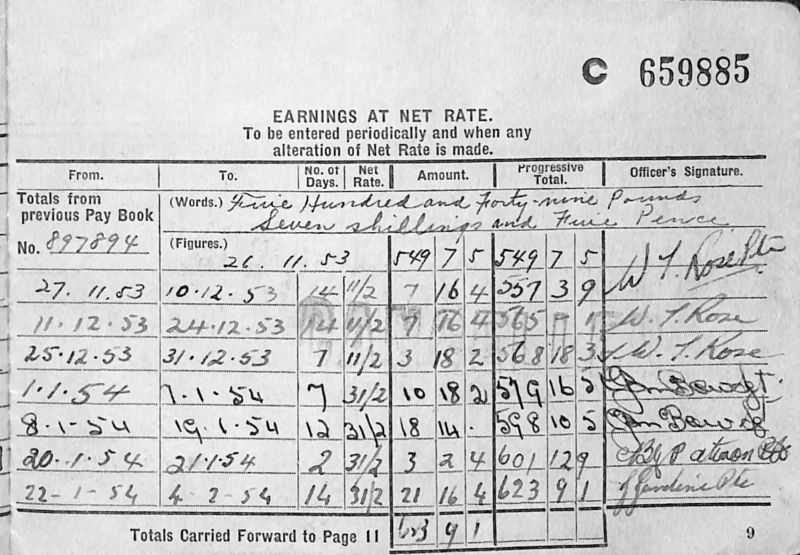 C 659885
EARNINGS AT NET RATE.
To be entered periodically and when any
alteration of Net Rate is made.
From. To. No. of Days. Net Rate. Amount. Progressive Total. Officer's Signature.
Totals from previous Pay Book (Words.) Five Hundred and Forty-nine Pounds
Seven shillings and Five Pence
No. 897894 (Figures.) 26. 11. 53 549 7 5 549 7 5 W T. Rose Pte
27. 11. 53 10. 12. 53 14 11/2 7 16 4 557 3 9
11. 12. 53 24. 12. 53 14 11/2 7 16 4 565 - 1 W. T. Rose
25. 12. 53 31. 12. 53 7 11/2 3 18 2 568 18 3 W. T. Rose
1. 1. 54 7. 1. 54 7 31/2 10 18 2 579 16 5
8. 1- 54 19. 1. 54 12 31/2 18 14 . 598 10 5
20. 1. 54 21.1.54 2 31/2 3 2 4 601 12 9
22- 1- 54 4- 2- 54 14 31/2 21 16 4 623 9 1
Totals Carried Forward to Page 11 623 9 1
9